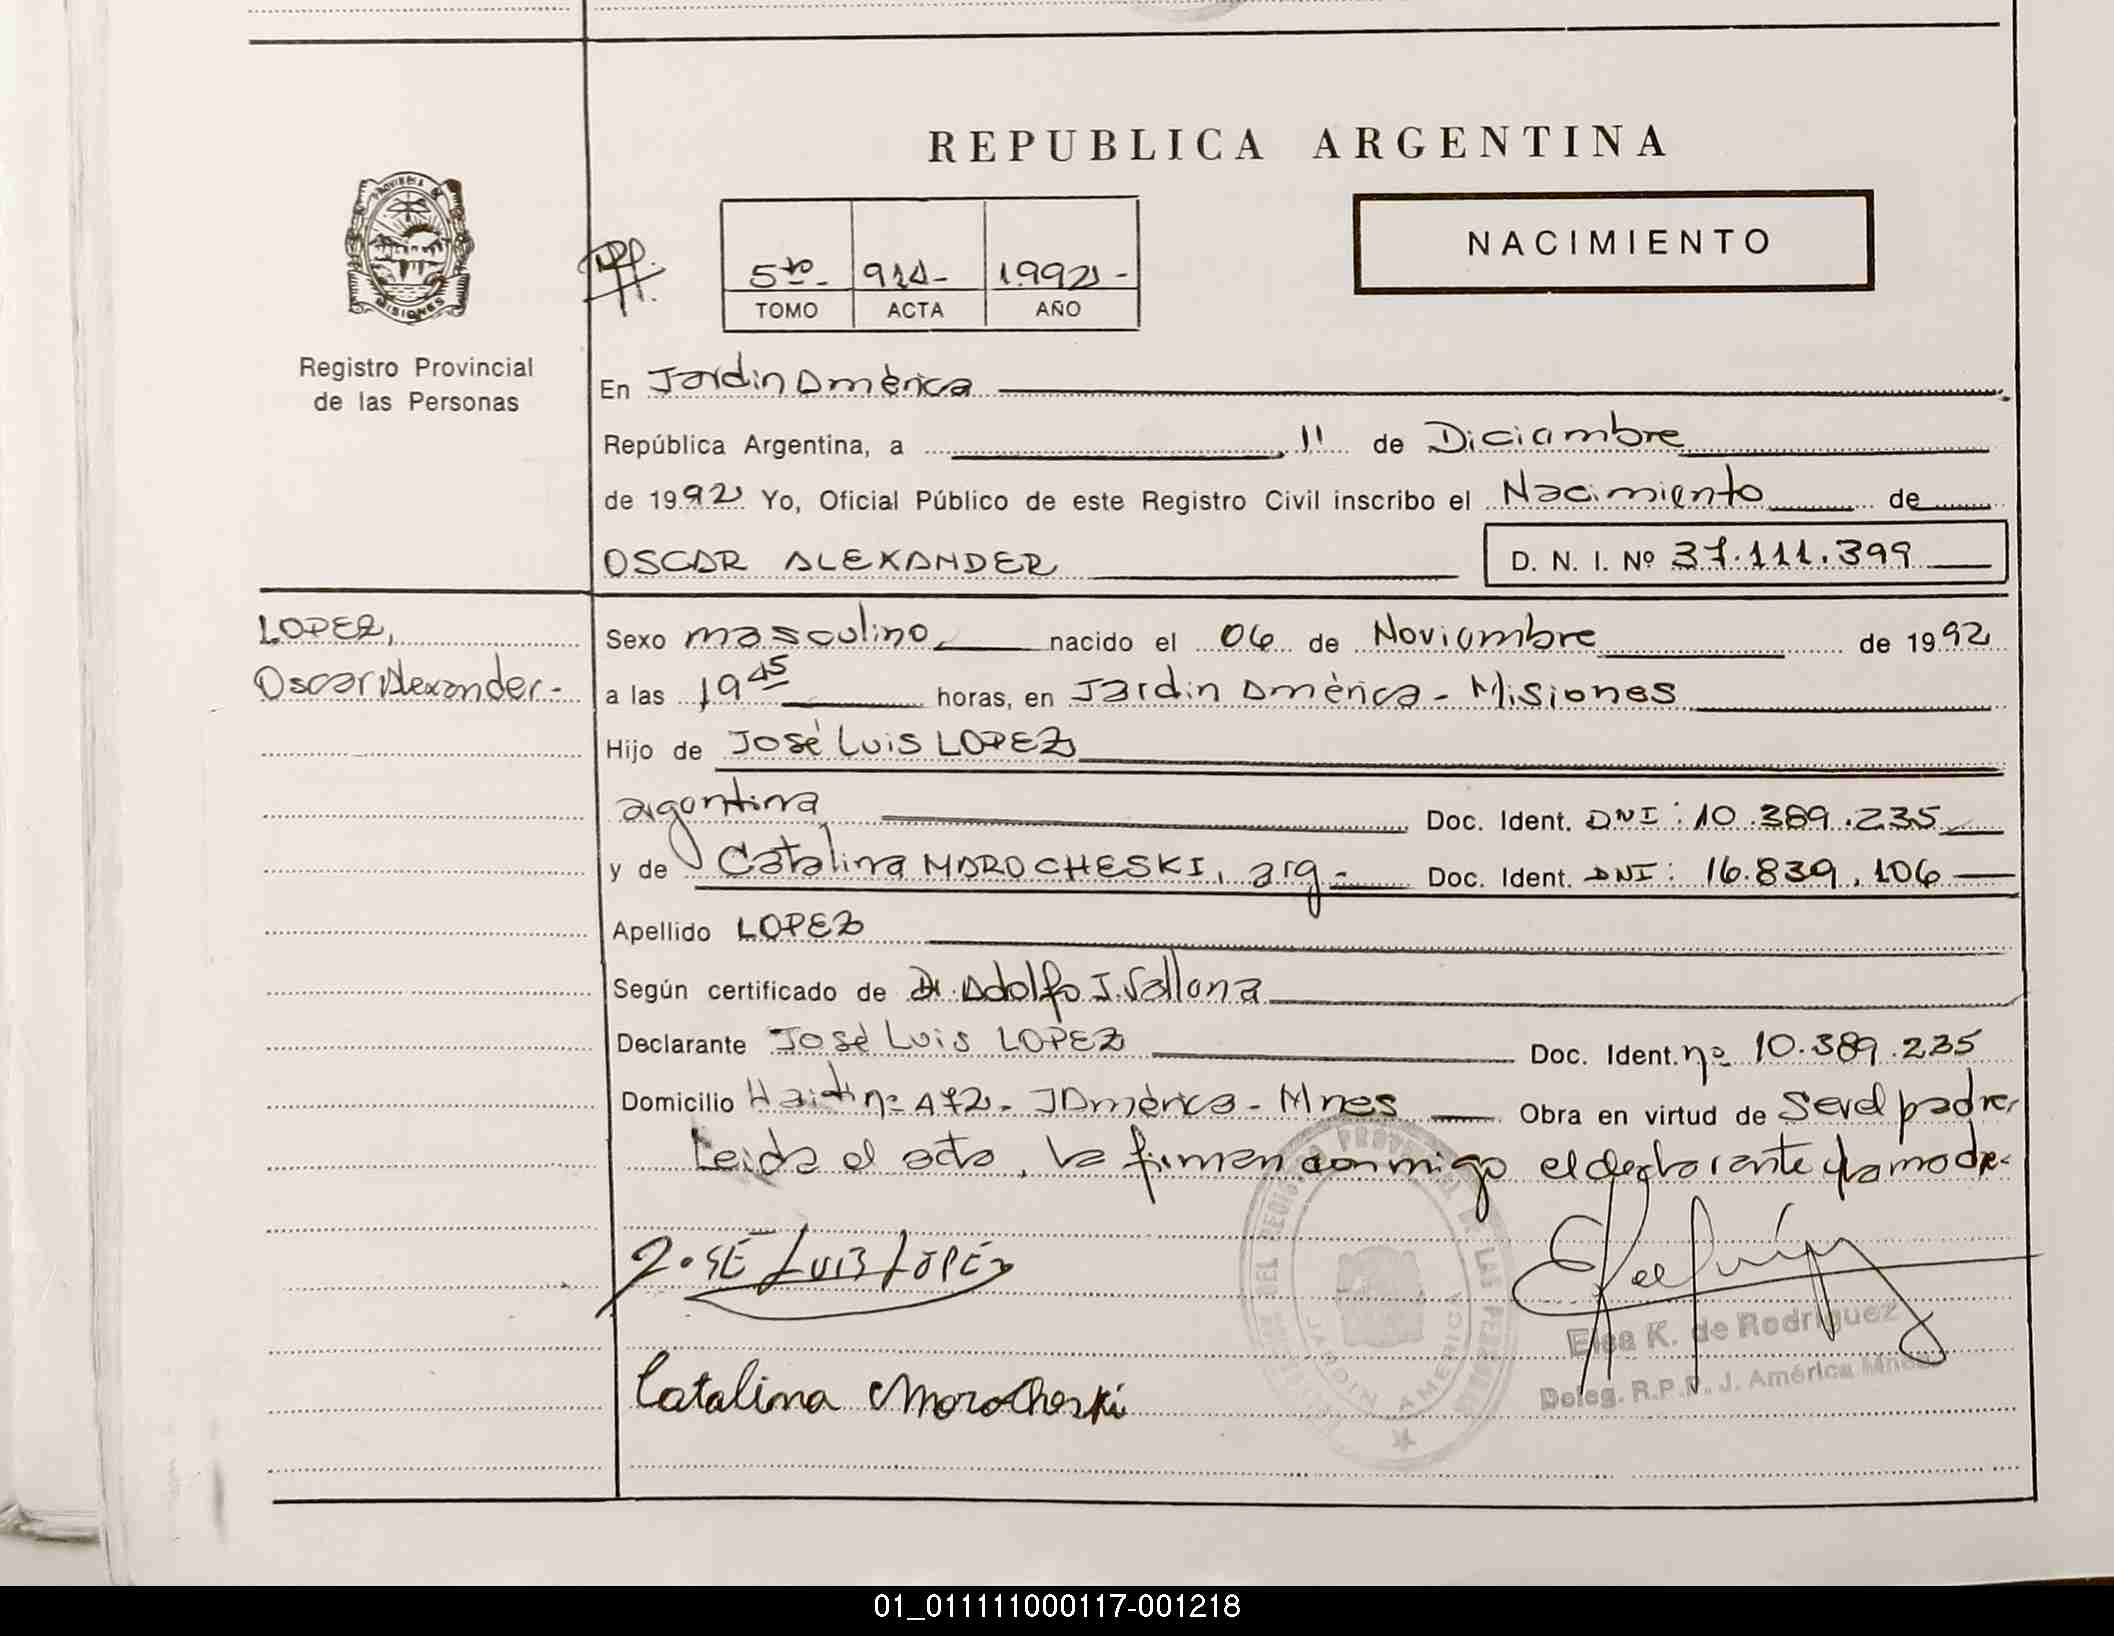 REPUBLICA ARGENTINA
PROVINCIA DE MISIONES
5to - 914 - 1992 -
TOMO ACTA AÑO
NACIMIENTO
Registro Provincial
de las Personas
En Jardin América
República Argentina, a 11 de Diciembre
de 1992 Yo, Oficial Público de este Registro Civil inscribo el Nacimiento de
OSCAR ALEXANDER D. N. I. Nº 37.111.399
LOPEZ,
Oscar Alexander.-
Sexo masculino nacido el 06 de Noviembre de 1992
a las 19 45 horas, en Jardin América - Misiones
Hijo de José Luis LOPEZ
argentina Doc. Ident. DNI: 10.389.235
y de Catalina MAROCHESKI, arg.- Doc. Ident. DNI: 16.839.106
Apellido LOPEZ
Según certificado de Dr. Adolfo J. Vallona
Declarante José Luis LOPEZ Doc. Ident. nº 10.389.235
Domicilio Haiti nº 472 - J América - Mnes Obra en virtud de Ser el padre,
Leida el acta, la firman conmigo el declarante y la madre.
JOSÉ LUIS LOPEZ
Elsa K. de Rodríguez
Deleg. R.P.P. J. América Mnes
Catalina Marocheski
JARDIN AMERICA
01_011111000117-001218